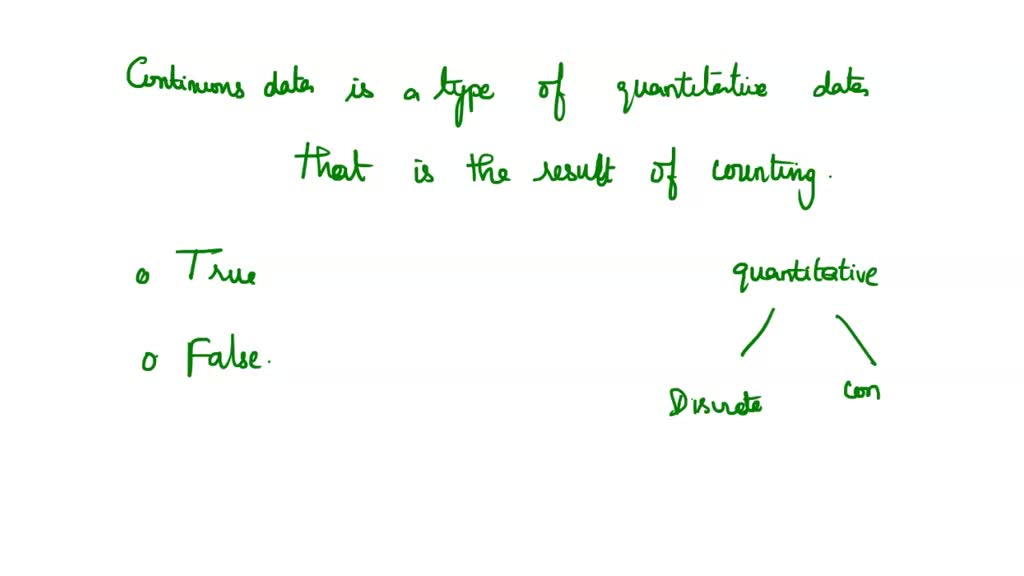 Continuous data is a type of quantitative data
that is the result of counting.
o True
o False.
quantitative
Discrete con